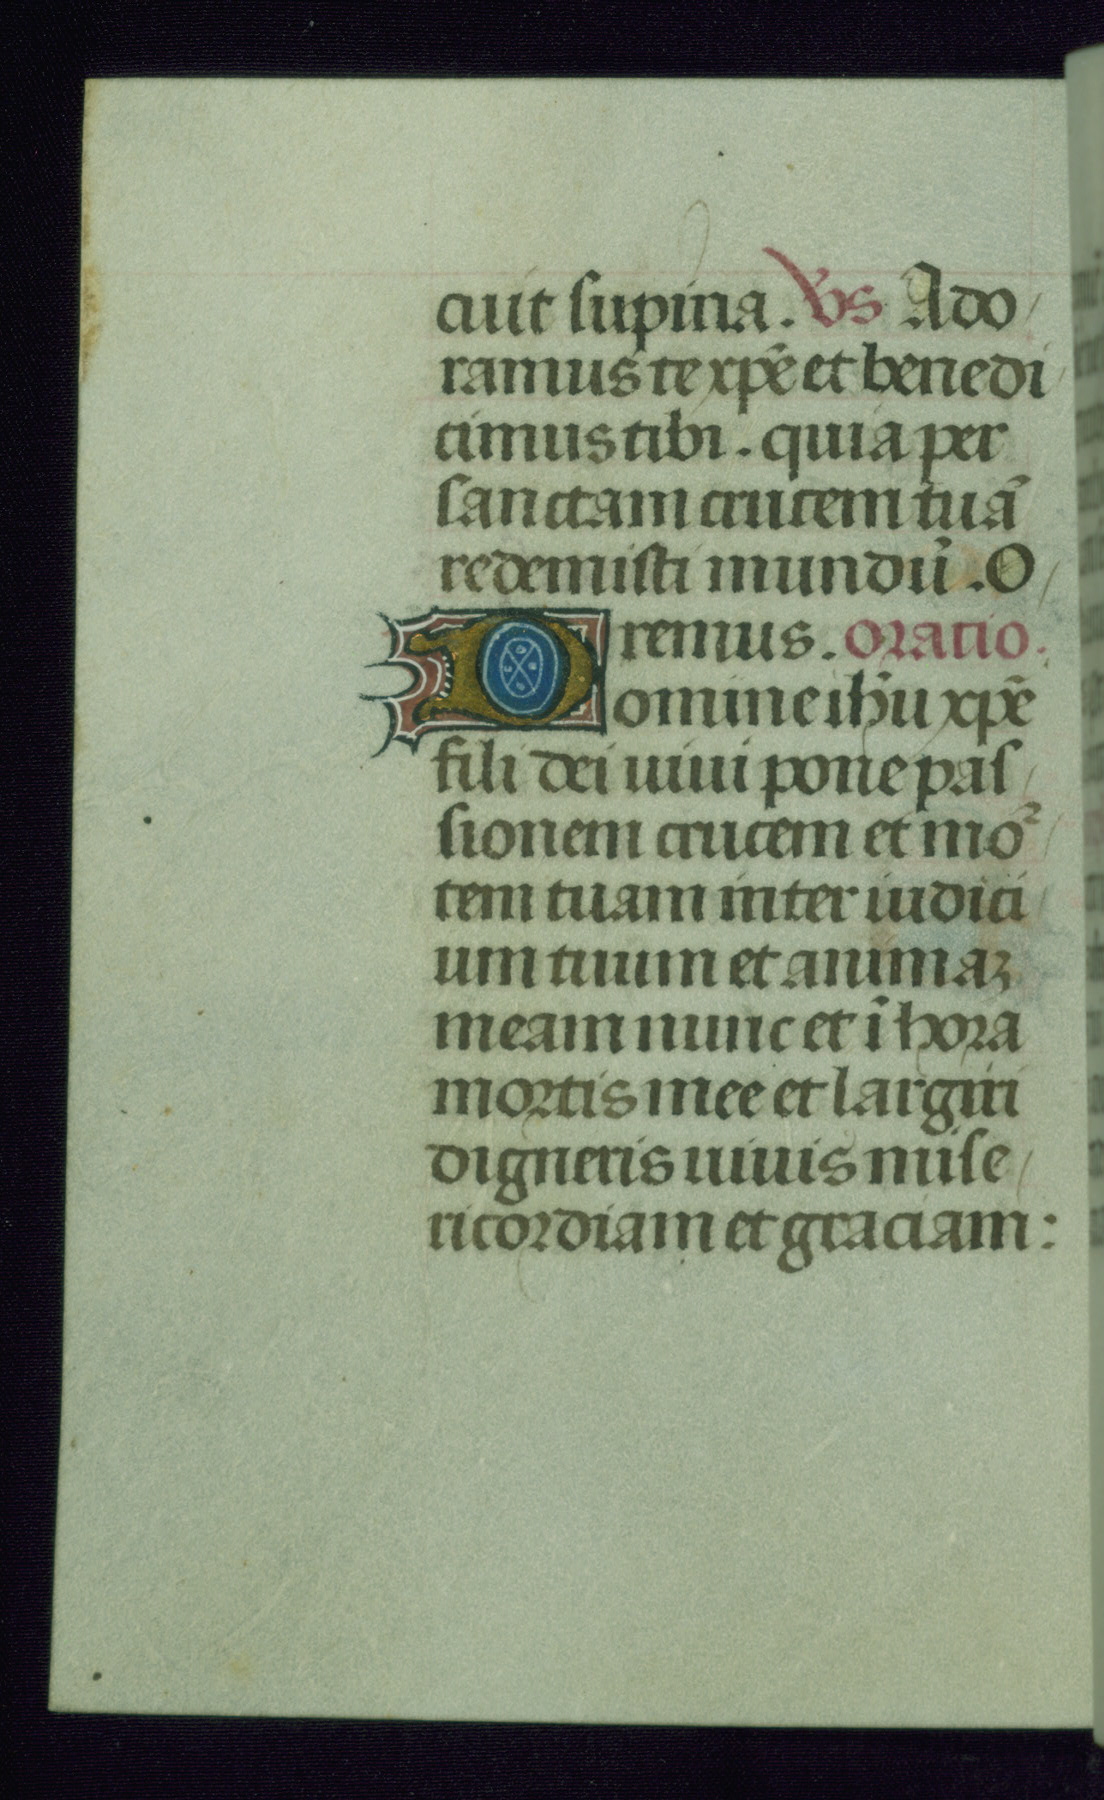 cuit supina. Vs Ado
ramus te xpē et benedi
cimus tibi. quia per
sanctam crucem tuā
redemisti mundū. O
remus. Oratio.
Domine ihū xpē
fili dei uiui pone pas
sionem crucem et moꝛ
tem tuam inter iudici
um tuum et animaꝫ
meam nunc et ī hora
mortis mee et largiri
digneris uiuis mise
ricordiam et graciam: